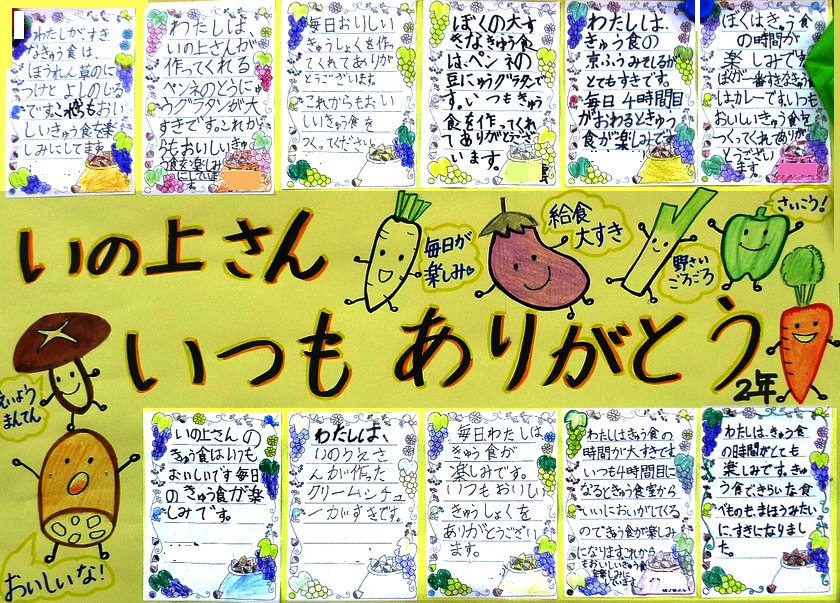 わたしがすき
なきゅう食は、
ほうれん草のに
つけと よしのじる
です。これからもおい
しいきゅう食を楽
しみにしてます。
わたしは、
いの上さんが
作ってくれる
ペンネのとうにゅ
うグラタンが大
すきです。これか
らもおいしいきゅ
う食を楽しみ
にしています。
毎日おいしい
きゅうしょくを作っ
てくれてありが
とうございます。
これからもおい
しいきゅう食を
つくってください。
ぼくの大す
きなきゅう食
は、ペンネの
豆にゅうグラタンで
す。いつもきゅう
食を作ってくれ
てありがとうござ
います。
わたしは、
きゅう食の
京ふうみそしるが
とてもすきです。
毎日4時間目
がおわるときゅう
食が楽しみです。
ぼくはきゅう食
の時間が
楽しみです。
ぼくが一番すきなきゅう食
は、カレーです。いつも
おいしいきゅう食を
つくってくれてありが
とうござい
ます
いの上さん
毎日が
楽しみ
給食
大すき
野さい
ごろごろ
さいこう!
いつもありがとう
2年
えいよう
まんてん
おいしいな!
いの上さんの
きゅう食はいつも
おいしいです毎日
のきゅう食が楽
しみです。
わたしは、
いのうえさ
んが作った
クリームシチュ
ーがすきです。
毎日わたしは
きゅう食が
楽しみです。
いつもおいしい
きゅうしょくを
ありがとうござい
ます。
わたしはきゅう食の
時間が大すきです。
いつも4時間目に
なるときゅう食室から
いいにおいがしてくる
のできゅう食が楽しみ
になります。これから
もおいしいきゅう食
を楽しみに
しています
わたしは、きゅう食
の時間がとても
楽しみです。きゅ
う食できらいな食
べものも、まほうみたい
に、すきになりまし
た。